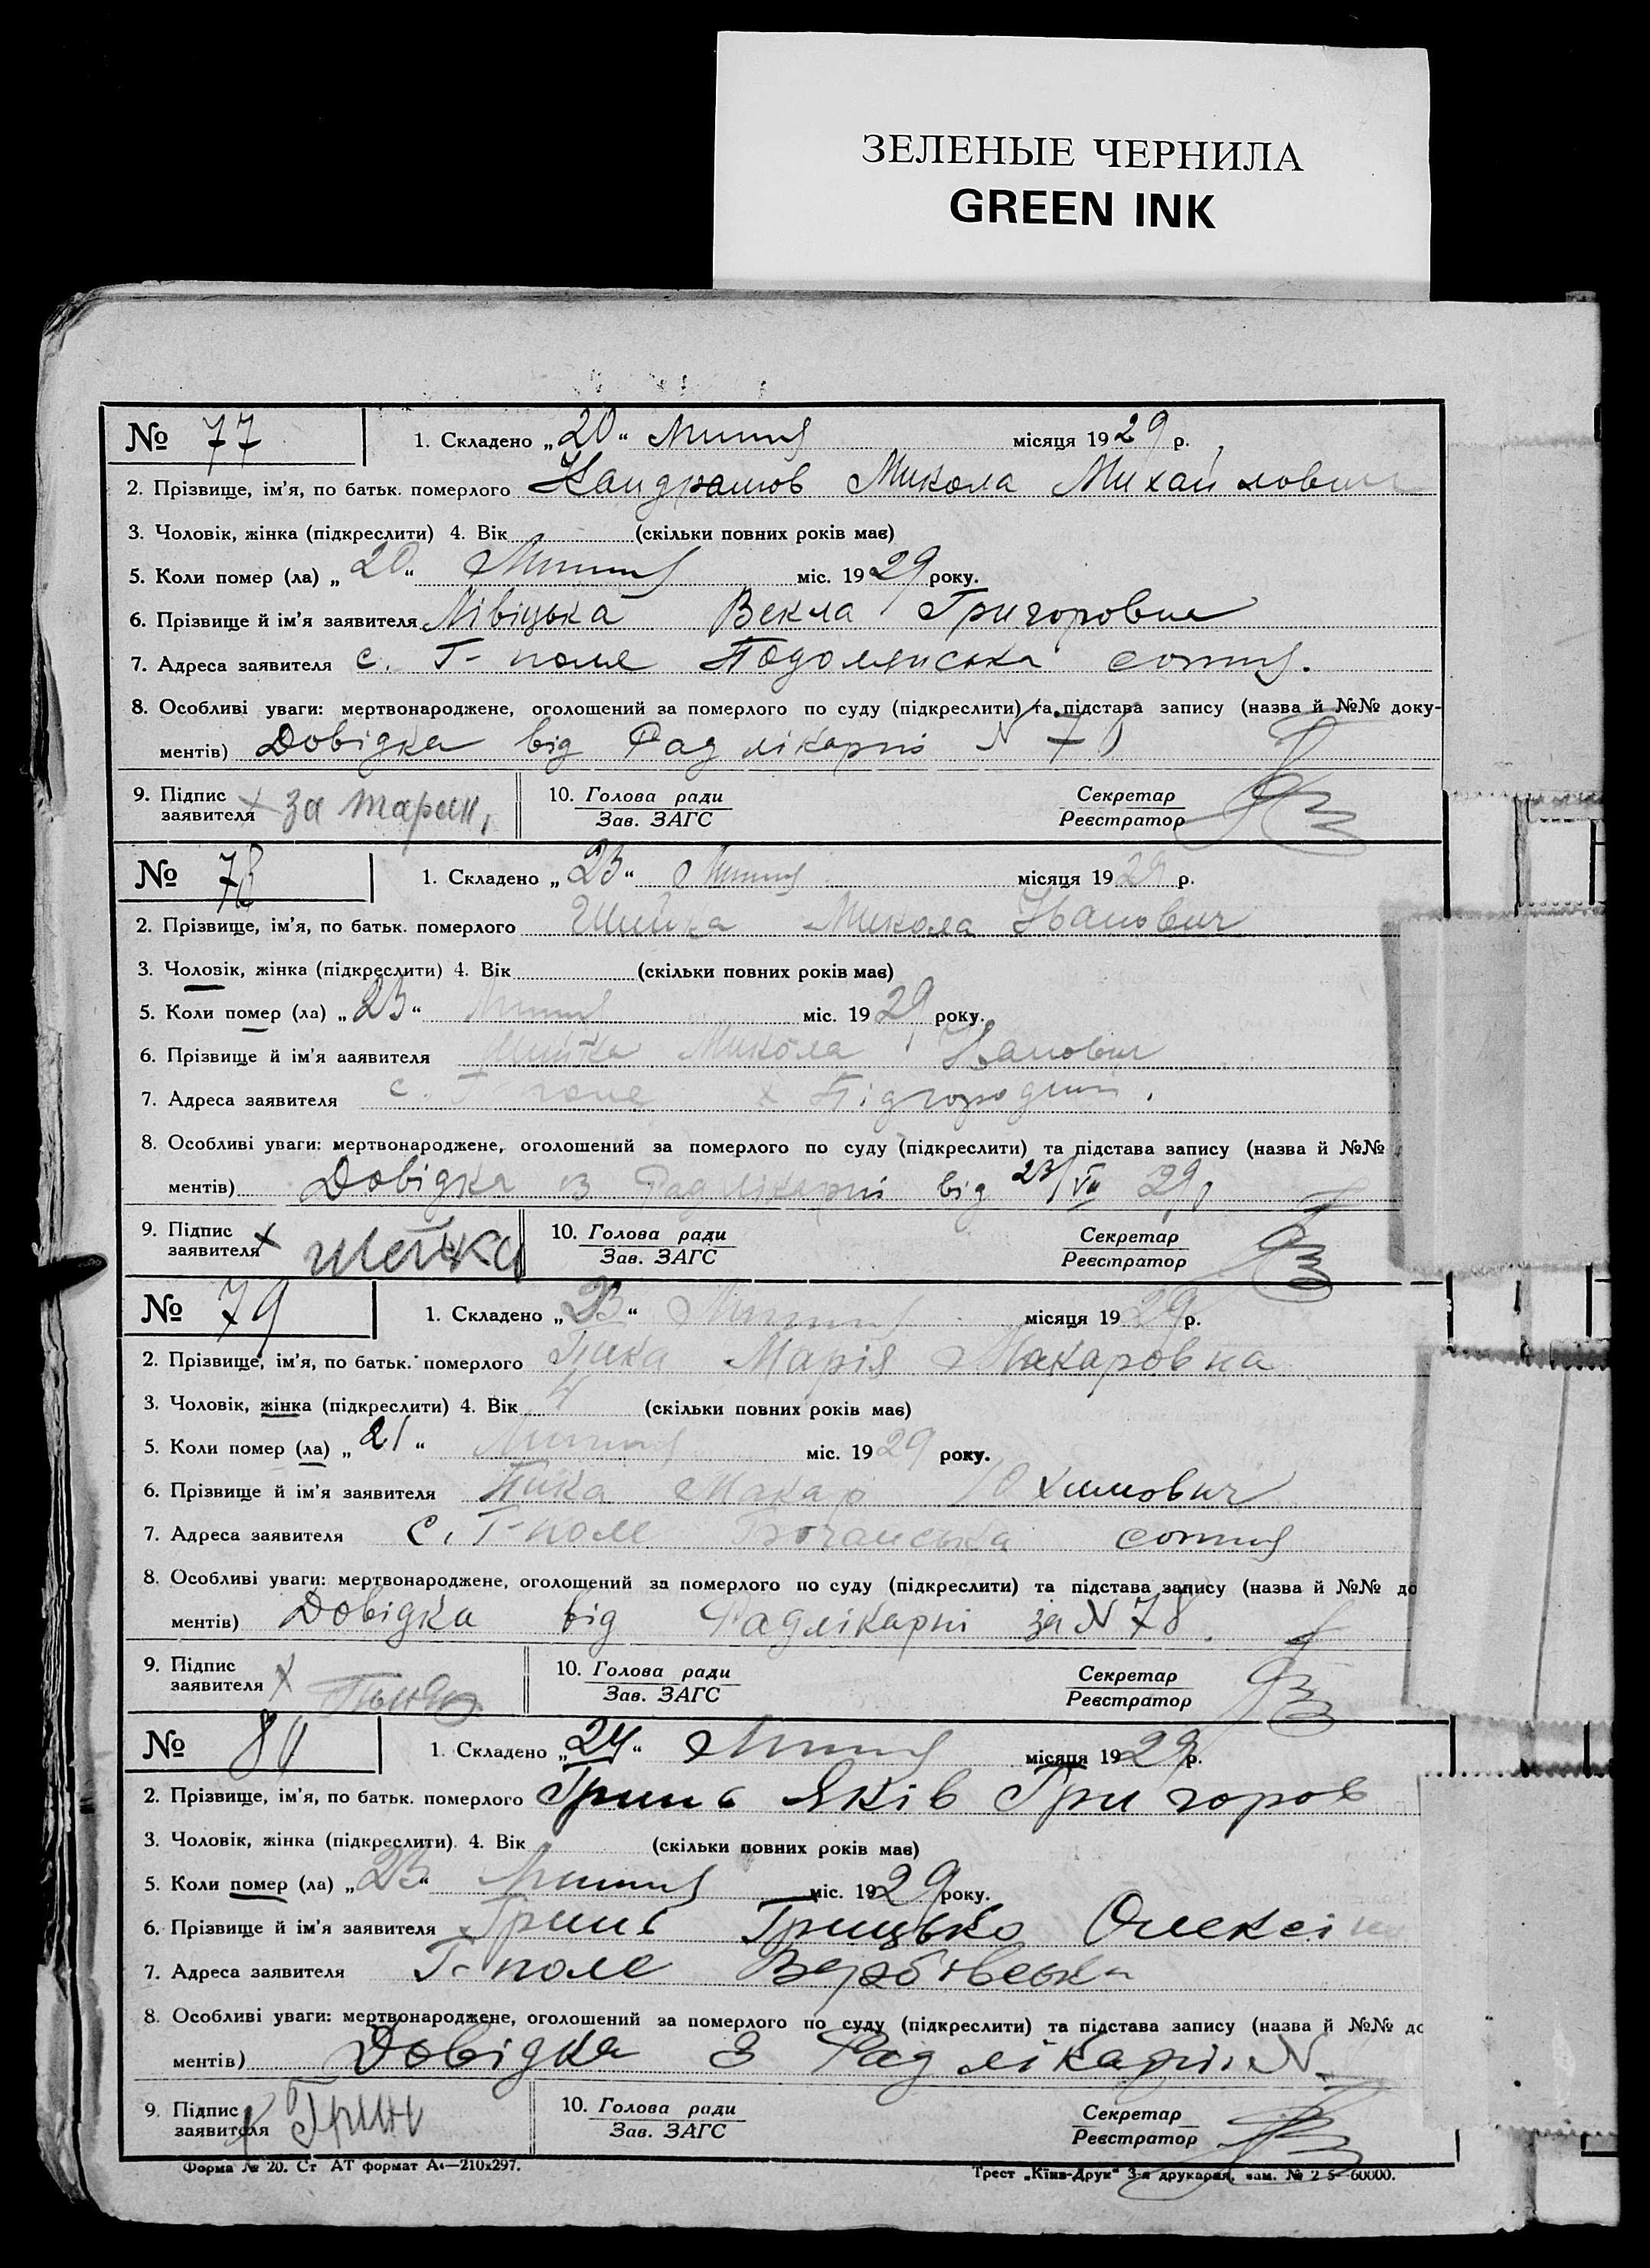 ЗЕЛЕНЫЕ ЧЕРНИЛА
GREEN INK
№ 77 1. Складено „20“ Липня місяця 1929 р.
2. Прізвище, ім’я, по батьк. померлого Микола Михайлович
3. Чоловік, жінка (підкреслити) 4. Вік (скільки повних років має)
5. Коли помер (ла) „20“ Липня міс. 1929 року.
6. Прізвище й ім’я заявителя Григоровна
7. Адреса заявителя с. Г-поле Подолянська сотня.
8. Особливі уваги: мертвонароджене, оголошений за померлого по суду (підкреслити) та підстава запису (назва й №№ доку-
ментів) Довідка від Рад лікарні N
9. Підпис заявителя х за 10. Голова ради Зав. ЗАГС Секретар Реєстратор
№ 78 1. Складено „23“ Липня місяця 1929 р.
2. Прізвище, ім’я, по батьк. померлого Шийка Микола Іванович
3. Чоловік, жінка (підкреслити) 4. Вік (скільки повних років має)
5. Коли помер (ла) „23“ Липня міс. 1929 року.
6. Прізвище й ім’я заявителя Шийка Микола Іванович
7. Адреса заявителя с. Г-поле х
8. Особливі уваги: мертвонароджене, оголошений за померлого по суду (підкреслити) та підстава запису (назва й №№
ментів) Довідка з Рад лікарні від 23/VII 29 р
9. Підпис заявителя х Шейка 10. Голова ради Зав. ЗАГС Секретар Реєстратор
№ 79 1. Складено „23“ Липня місяця 1929 р.
2. Прізвище, ім’я, по батьк. померлого Пика Марія Макаровна
3. Чоловік, жінка (підкреслити) 4. Вік (скільки повних років має)
5. Коли помер (ла) „21“ Липня міс. 1929 року.
6. Прізвище й ім’я заявителя Пика Макар Юхимович
7. Адреса заявителя с. Г-поле сотня
8. Особливі уваги: мертвонароджене, оголошений за померлого по суду (підкреслити) та підстава запису (назва й №№ до
ментів) Довідка від Радлікарні за N 78
9. Підпис заявителя х 10. Голова ради Зав. ЗАГС Секретар Реєстратор
№ 80 1. Складено „24“ Липня місяця 1929 р.
2. Прізвище, ім’я, по батьк. померлого Гринь Яків Григоров
3. Чоловік, жінка (підкреслити) 4. Вік (скільки повних років має)
5. Коли помер (ла) „23“ Липня міс. 1929 року.
6. Прізвище й ім’я заявителя Гринь Грицько
7. Адреса заявителя Г-поле Вербівська
8. Особливі уваги: мертвонароджене, оголошений за померлого по суду (підкреслити) та підстава запису (назва й №№ до
ментів) Довідка з Рад лікарні N
9. Підпис заявителя х Грин 10. Голова ради Зав. ЗАГС Секретар Реєстратор
Форма № 20. Ст АТ формат А4—210х297. Трест „Київ-Друк“ 3-я друкарня,